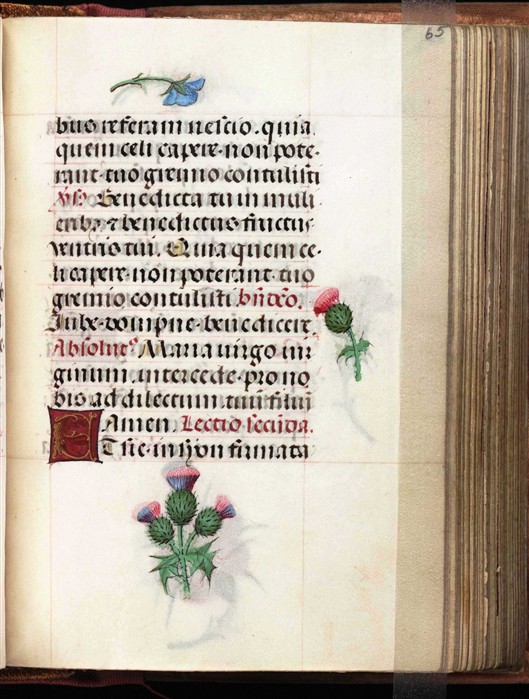 65
bus referam nescio. quia
quem celi capere non pote⸗
rant tuo gremio contulisti
v̄s. Benedicta tu in muli
eribꝫ ⁊ benedictus fructus
ventris tui. Quia quem ce⸗
li capere non poterant tuo
gremio contulisti bn̄dcō.
Iube dompne benedicere.
Absolutꝰ. Maria uirgo uir
ginum. intercede pro no
bis ad dilectum tuū filiū
Amen. Lectio secūda.
ET sic in syon firmata